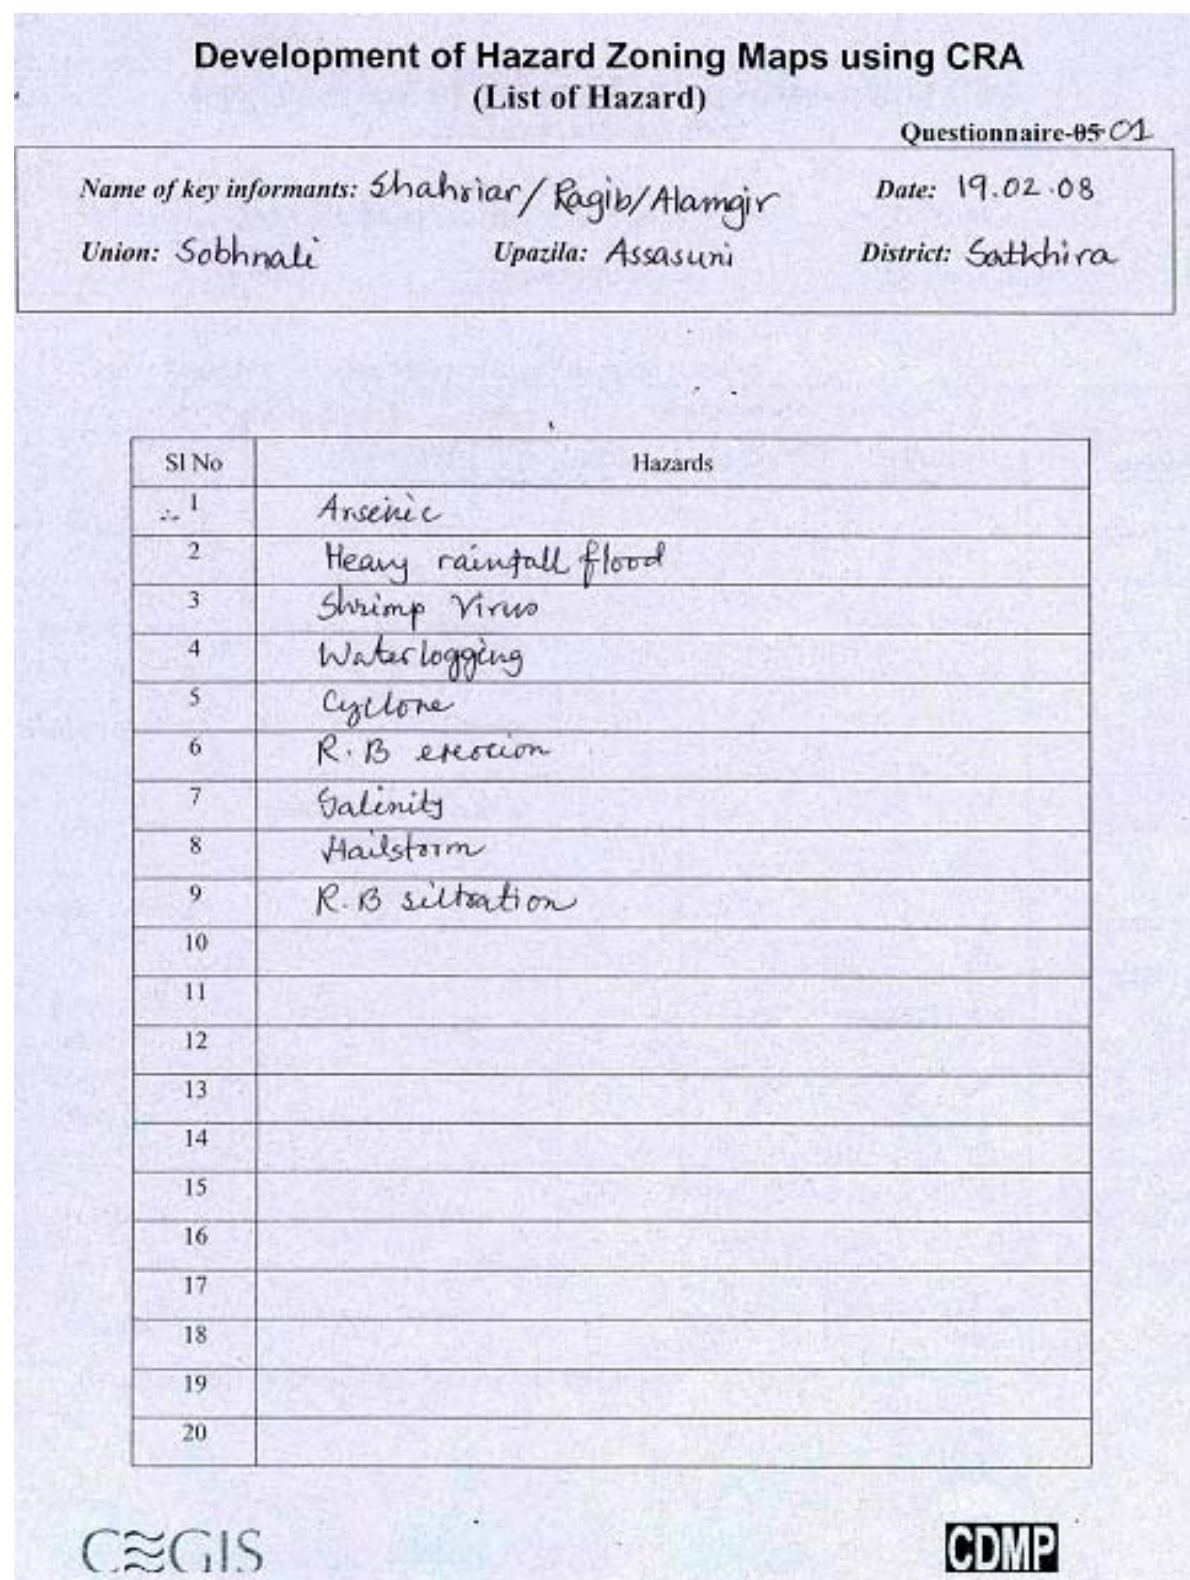 Development of Hazard Zoning Maps using CRA
(List of Hazard)
Questionnaire-05 01
Name of key informants: Shahriar/Ragib/Alamgir Date: 19.02.08
Union: Sobhnali Upazila: Assasuni District: Satkhira
Sl No Hazards
1 Arsenic
2 Heavy rainfall flood
3 Shrimp Virus
4 Waterlogging
5 Cyclone
6 R.B erotion
7 Salinity
8 Hailstorm
9 R.B siltration
10
11
12
13
14
15
16
17
18
19
20
CEGIS CDMP